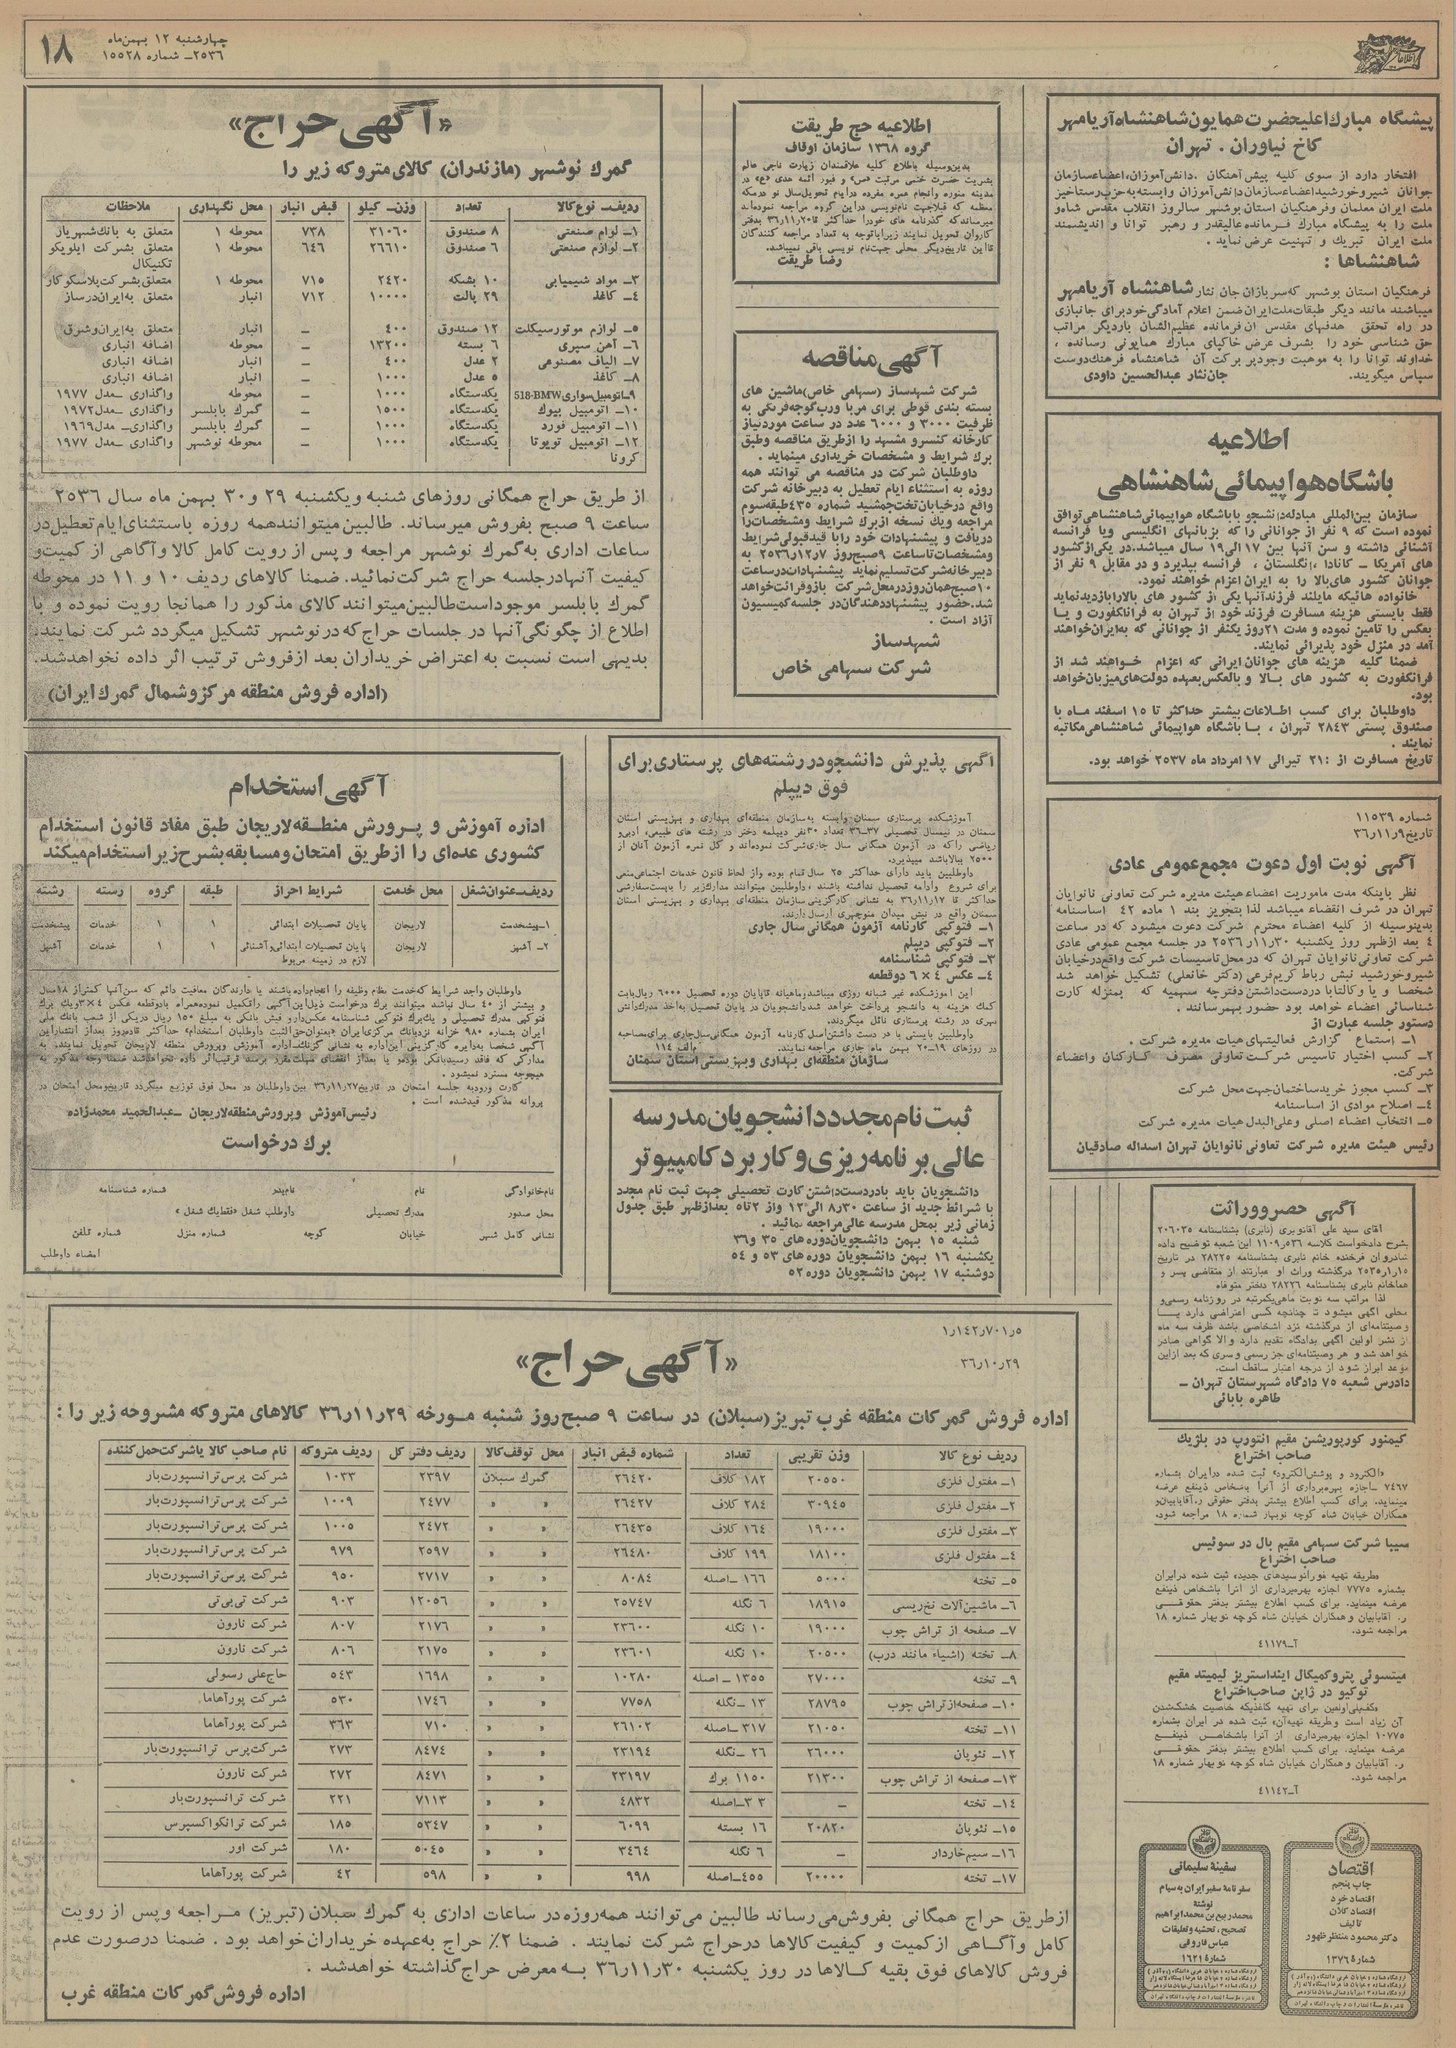 ۱۸
چهارشنبه ۱۲ بهمن‌ماه
۲۵۳۶ـ شماره ۱۵۵۲۸
اطلاعات
پیشگاه مبارك اعلیحضرت همایون شاهنشاه آریامهر
کاخ نیاوران . تهران
افتخار دارد از سوی کلیه پیش آهنگان ،دانش‌آموزان،اعضاءسازمان
جوانان شیروخورشید اعضاءسازمان‌دانش‌آموزان وابسته به‌حزب رستاخیز
ملت ایران معلمان وفرهنگیان استان‌بوشهر سالروز انقلاب مقدس شاه‌و
ملت را به پیشگاه مبارك فرمانده‌عالیقدر و رهبر توانا و اندیشمند
ملت ایران تبریك و تهنیت عرض نماید .
شاهنشاها :
فرهنگیان استان بوشهر که‌سربازان جان نثار شاهنشاه آریامهر
میباشند مانند دیگر طبقات‌ملت‌ایران ضمن اعلام آمادگی‌خودبرای جانبازی
در راه تحقق هدفهای مقدس آن فرمانده عظیم‌الشان باردیگر مراتب
حق شناسی خود را بشرف عرض خاکپای مبارك همایونی رسانده ،
خداوند توانا را به موهبت وجودپر برکت آن شاهنشاه فرهنگ‌دوست
سپاس میگویند. جان‌نثار عبدالحسین داودی
اطلاعیه
باشگاه هواپیمائی شاهنشاهی
سازمان بین‌المللی مبادله‌دانشجو باباشگاه هواپیمائی‌شاهنشاهی‌توافق
نموده است که ۹ نفر از جوانانی را که بزبانهای انگلیسی ویا فرانسه
آشنائی داشته و سن آنها بین ۱۷ الی‌۱۹ سال میباشد،در یکی‌ازکشور
های آمریکا ـ کانادا ،انگلستان ، فرانسه بپذیرد و در مقابل ۹ نفر از
جوانان کشور های‌بالا را به ایران اعزام خواهند نمود.
خانواده هائیکه مایلند فرزندآنها یکی از کشور های بالارابازدیدنماید
فقط بایستی هزینه مسافرت فرزند خود از تهران به فرانکفورت و یـا
بعکس را تامین نموده و مدت ۲۱روز یکنفر از جوانانی که به‌ایران‌خواهند
آمد در منزل خود پذیرائی نمایند.
ضمنا کلیه هزینه های جوانان ایرانی که اعزام خـواهند شد از
فرانکفورت به کشور های بـالا و بالعکس‌بعهده دولت‌های‌میزبان‌خواهد
بود.
داوطلبان برای کسب اطلاعات بیشتر حداکثر تا ۱۵ اسفند مـاه با
صندوق پستی ۲۸۴۳ تهران ، بـا باشگاه هواپیمائی شاهنشاهی‌مکاتبه
نمایند .
تاریخ مسافرت از : ۲۱ تیرالی ۱۷ امرداد ماه ۲۵۳۷ خواهد بود.
شماره ۱۱۵۳۹
تاریخ۹ر۱۱ر۳۶
آگهی نوبت اول دعوت مجمع‌عمومی عادی
نظر باینکه مدت ماموریت اعضاء‌هیئت مدیره شرکت تعاونی نانوایان
تهران در شرف انقضاء میباشد لذا بتجویز بند ۱ ماده ۴۲ اساسنامه
بدینوسیله از کلیه اعضاء محترم شرکت دعوت میشود که در ساعت
۴ بعد ازظهر روز یکشنبه ۳۰ر۱۱ر۲۵۳۶ در جلسه مجمع عمومی عادی
شرکت تعاونی‌نانوایان تهران که درمحل‌تاسیسات شرکت واقع‌درخیابان
شیروخورشید نبش رباط کریم‌فرعی (دکتر خانعلی) تشکیل خواهد شد
شخصا و یا وکالتابا دردست‌داشتن‌دفترچه سهمیه که بمنزله کارت
شناسائی اعضاء خواهد بود حضور بهمرسانند.
دستور جلسه عبارت از
۱ـ استماع گزارش فعالیتهای هیات مدیره شرکت .
۲ـ کسب اختیار تاسیس شرکت تعاونی مصرف کارکنان واعضاء
شرکت.
۳ـ کسب مجوز خریدساختمان‌جهت محل شرکت
۴ـ اصلاح موادی از اساسنامه
۵ـ انتخاب اعضاء اصلی وعلی‌البدل هیات مدیره شرکت
رئیس هیئت مدیره شرکت تعاونی نانوایان تهران اسداله صادقیان
آگهی حصروراثت
آقای سید علی آقانویری (نایری) بشناسنامه ۲۰۶۰۳۵
بشرح دادخواست کلاسه ۵۳۶ر۱۱۰۹ این شعبه توضیح داده
شادروان فرخنده خانم نایری بشناسنامه ۲۸۲۲۵ در تاریخ
۱۵ر۱ر۲۵۳۵ درگذشته وراث او عبارتند از متقاضی پسر و
هماخانم نایری بشناسنامه ۲۸۲۲۶ دختر متوفاه
لذا مراتب سه نوبت ماهی‌یکمرتبه در روزنامه رسمی‌و
محلی آگهی میشود تا چنانچه کسی اعتراضی دارد یـا
وصیتنامه‌ای از درگذشته نزد اشخاصی باشد ظرف سه ماه
از نشر اولین آگهی بدادگاه تقدیم دارد والا گواهی صادر
خواهد شد و هر وصیتنامه‌ای جز رسمی وسری که بعد ازاین
موعد ابراز شود از درجه اعتبار ساقط است.
دادرس شعبه ۷۵ دادگاه شهرستان تهران ـ
طاهره بابائی
کیمنور کورپوریشن مقیم انتورپ در بلژیك
صاحب اختراع
«الکترود و پوشش‌الکترود» ثبت شده درایران بشماره
۷۴۶۷ ـ اجازه بهره‌برداری از آنرا باشخاص ذینفع عرضه
مینماید. برای کسب اطلاع بیشتر بدفتر حقوقی ر.آقابابیان‌و
همکاران خیابان شاه کوچه نوبهار شماره ۱۸ مراجعه شود.
سیبا شرکت سهامی مقیم بال در سوئیس
صاحب اختراع
بشماره ۷۷۷۵ اجازه بهره‌برداری از آنرا باشخاص ذینفع
عرضه مینماید. برای کسب اطلاع بیشتر بدفتر حقوقـی
ر. آقابابیان و همکاران خیابان شاه کوچه نوبهار شماره ۱۸
مراجعه شود.
آـ۴۱۱۷۹
میتسوئی پتروکمیکال اینداستریز لیمیتد مقیم
توکیو در ژاپن صاحب‌اختراع
آن زیاد است وطریقه تهیه‌آن» ثبت شده در ایران بشماره
۱۰۷۷۵ اجازه بهره‌برداری از آنرا باشخاص ذینفع
عرضه مینماید. برای کسب اطلاع بیشتر بدفتر حقوقـی
ر. آقابابیان وهمکاران خیابان شاه کوچه نوبهار شماره ۱۸
مراجعه شود.
آـ۴۱۱۴۲
اقتصاد
چاپ پنجم
اقتصاد خرد
اقتصاد کلان
تالیف
دکتر محمود منتظر ظهور
شماره ۱۳۷۶
سفینهٔ سلیمانی
سفرنامهٔ سفیر ایران به سیام
نوشتهٔ
محمدربیع بن محمدابراهیم
تصحیح، تحشیه و تعلیقات
عباس فاروقی
شمارهٔ ۱۶۲۱
اطلاعیه حج طریقت
گروه ۱۳۶۸ سازمان اوقاف
بدین‌وسیله باطلاع کلیه علاقمندان زیارت ناجی عالم
بشریت حضرت ختمی مرتبت «ص» و قبور ائمه هدی «ع» در
مدینه منوره وانجام عمره مفرده درایام تحویل‌سال نو درمکه
معظمه که قبلاجهت نام‌نویسی دراین گروه مراجعه نموده‌اند
میرساندکه گذرنامه های خودرا حداکثر تا۲۰ر۱۱ر۳۶ بدفتر
کاروان تحویل نمایند زیراباتوجه به تعداد مراجعه کنندگان
تااین تاریخ‌دیگر محلی جهت‌نام نویسی باقی نمیباشد.
رضا طریقت
آگهی مناقصه
شرکت شهدساز (سهامی خاص)ماشین های
بسته بندی قوطی برای مربا ورب‌گوجه‌فرنگی به
ظرفیت ۳۰۰۰ و ۶۰۰۰ عدد در ساعت موردنیاز
کارخانه کنسرو مشهد را ازطریق مناقصه وطبق
برك شرایط و مشخصات خریداری مینماید .
داوطلبان شرکت در مناقصه می توانند همه
روزه به استثناء ایام تعطیل به دبیرخانه شرکت
واقع درخیابان‌تخت‌جمشید شماره ۴۳۵طبقه‌سوم
مراجعه ویك نسخه ازبرك شرایط ومشخصات‌را
دریافت و پیشنهادات خود را با قیدقبولی‌شرایط
ومشخصات‌تاساعت ۹صبح‌روز ۷ر۱۲ر۲۵۳۶ به
دبیرخانه‌شرکت‌تسلیم‌نماید پیشنهادات‌درساعت
۱۰صبح‌همان‌روزدرمحل‌شرکت بازوقرائت‌خواهد
شد.حضور پیشنهاددهندگان‌در جلسه‌کمیسیون
آزاد است .
شهدساز
شرکت سهامی خاص
«آگهی حراج»
گمرك نوشهر (مازندران) کالای متروکه زیر را
ردیف‌ـ نوع‌کالا تعداد وزن‌ـ کیلو قبض انبار محل نگهداری ملاحظات
۱ـ لوام صنعتی ۸ صندوق ۳۱۰۶۰ ۷۳۸ محوطه ۱ متعلق به بانك‌شهریاز
۲ـ لوازم صنعتی ۶ صندوق ۲۶۶۱۰ ۶۴۶ محوطه ۱ متعلق بشرکت ایلویکو
تکنیکال
۳ـ مواد شیمیایی ۱۰ بشکه ۲۴۲۰ ۷۱۵ محوطه ۱ متعلق‌بشرکت‌پلاسکوکار
۴ـ کاغذ ۲۹ پالت ۱۰۰۰۰ ۷۱۲ انبار متعلق به‌ایران‌درساز
۵ـ لوازم موتورسیکلت ۱۲ صندوق ۴۰۰ ـ انبار متعلق به‌ایران‌وشرق
۶ـ آهن سپری ۶ بسته ۱۳۲۰۰ ـ محوطه اضافه انباری
۷ـ الیاف مصنوعی ۲ عدل ۴۰۰ ـ انبار اضافه انباری
۸ـ کاغذ ۵ عدل ۱۰۰۰ ـ انبار اضافه انباری
۹ـ‌اتومبیل‌سواری518-BMW یکدستگاه ۱۰۰۰ ـ محوطه واگذاری ـ‌مدل ۱۹۷۷
۱۰ـ اتومبیل بیوك یکدستگاه ۱۵۰۰ ـ گمرك بابلسر واگذاری ـ مدل۱۹۷۲
۱۱ـ اتومبیل فورد یکدستگاه ۱۰۰۰ ـ گمرك بابلسر واگذاری‌ـ مدل۱۹۶۹
۱۲ـ اتومبیل تویوتا یکدستگاه ۱۰۰۰ ـ محوطه نوشهر واگذاری ـ‌مدل ۱۹۷۷
کرونا
از طریق حراج همگانی روزهای شنبه ویکشنبه ۲۹ و۳۰ بهمن ماه سال ۲۵۳۶
ساعت ۹ صبح بفروش میرساند. طالبین‌میتوانندهمه روزه باستثنای‌ایام‌تعطیل‌در
ساعات اداری به‌گمرك نوشهر مراجعه و پس از رویت کامل کالا وآگاهی از کمیت‌و
کیفیت آنهادرجلسه حراج شرکت‌نمائید. ضمنا کالاهای ردیف ۱۰ و ۱۱ در محوطه
گمرك بابلسر موجوداست‌طالبین‌میتوانندکالای مذکور را همانجا رویت نموده و با
اطلاع از چگونگی‌آنها در جلسات حراج‌که درنوشهر تشکیل میگردد شرکت نمایند.
بدیهی است نسبت به اعتراض خریداران بعد ازفروش ترتیب اثر داده نخواهدشد.
(اداره فروش منطقه مرکزوشمال گمرك‌ایران)
آگهی پذیرش دانشجودررشته‌های پرستاری‌برای
فوق دیپلم
آموزشکده پرستاری سمنان وابسته به‌سازمان منطقه‌ای بهداری و بهزیستی استان
سمنان در نیمسال تحصیلی ۳۷ـ۳۶ تعداد ۳۰نفر دیپلمه دختر در رشته های طبیعی، ادبی‌و
ریاضی راکه در آزمون همگانی سال جاری‌شرکت نموده‌اند و کل نمره آزمون آنان از
۲۵۰۰ ببالاباشد میپذیرد.
داوطلبان باید دارای حداکثر ۲۵ سال‌تمام بوده واز لحاظ قانون خدمات اجتماعی‌منعی
برای شروع وادامه تحصیل نداشته باشند ،داوطلبین میتوانند مدارك‌زیر را باپست‌سفارشی
حداکثر تا ۱۷ر۱۱ر۳۶ به نشانی کارگزینی‌سازمان منطقه‌ای بهداری و بهزیستی استان
سمنان واقع در نبش میدان منوچهری ارسال‌دارند.
۱ـ فتوکپی کارنامه آزمون همگانی سال جاری
۲ـ فتوکپی دیپلم
۳ـ فتوکپی شناسنامه
۴ـ عکس ۴ × ۶ دوقطعه
این آموزشکده غیر شبانه روزی میباشدوماهیانه تاپایان دوره تحصیل ۶۰۰۰ ریال‌بابت
کمك هزینه به دانشجو پرداخت خواهد شددانشجویان در پایان تحصیل به‌اخذ مدرك‌دانش
بهری در رشته پرستاری نائل میگردند.
داوطلبین بایستی با در دست داشتن‌اصل‌کارنامه آزمون همگانی‌سال‌جاری برای‌مصاحبه
در روزهای ۱۹ـ۲۰ بهمن ماه جاری مراجعه‌نمایند. م‌الف ۱۱۴
سازمان منطقه‌ای بهداری وبهزیستی استان سمنان
ثبت نام مجدددانشجویان مدرسه
عالی برنامه ریزی و کاربرد کامپیوتر
دانشجویان باید بادردست‌داشتن کارت تحصیلی جهت ثبت نام مجدد
با شرائط جدید از ساعت ۳۰ر۸ الی‌۱۲ واز ۲تا۵ بعدازظهر طبق جدول
زمانی زیر بمحل مدرسه عالی‌مراجعه نمائید .
شنبه ۱۵ بهمن دانشجویان‌دوره های ۳۵ و۳۶
یکشنبه ۱۶ بهمن دانشجویان دوره های ۵۳ و ۵۴
دوشنبه ۱۷ بهمن دانشجویان دوره ۵۲
آگهی استخدام
اداره آموزش و پـرورش منطـقه لاریجان طبق مفاد قانون استخدام
کشوری عده‌ای را ازطریق امتحان ومسابقه بشرح زیر استخدام میکند
ردیف‌ـ‌عنوان‌شغل محل خدمت شرایط احراز طبقه گروه رسته رشته
۱ـ‌پیشخدمت لاریجان پایان تحصیلات ابتدائی ۱ ۱ خدمات پیشخدمت
۲ـ آشپز لاریجان پایان تحصیلات ابتدائی‌وآشنائی ۱ ۱ خدمات آشپز
لازم در زمینه مربوط
داوطلبان واجد شرایط که‌خدمت نظام وظیفه را انجام‌داده‌باشند یا دارندگان معافیت دائم که سن‌آنها کمتراز ۱۸سال
و بیشتر از ۴۰ سال نباشد میتوانند برك درخواست ذیل‌این‌آگهی راتکمیل نموده‌همراه بادوقطعه عکس ۴×۳ویك برك
هیچوجه مسترد نمیشود .
کارت ورودبه جلسه امتحان در تاریخ۲۷ر۱۱ر۳۶ بین داوطلبان در محل فوق توزیع میگردد تاریخ‌ومحل امتحان در
پروانه مذکور قیدشده است .
رئیس‌آموزش وپرورش‌منطقه‌لاریجان ـ‌عبدالحمید محمدزاده
برك درخواست
نام‌خانوادگی نام نام‌پدر شماره شناسنامه
محل صدور مدرك تحصیلی داوطلب شغل «فقط‌یك شغل»
نشانی کامل شهر خیابان کوچه شماره منزل شماره تلفن
امضاء داوطلب
۵ر۷۰۱ر۱۴۲ر۱
۲۹ر۱۰ر۳۶
«آگهی حراج»
اداره فروش گمرکات منطقه غرب تبریز(سبلان) در ساعت ۹ صبح‌روز شنبه مـورخه ۲۹ر۱۱ر۳۶ کالاهای متروکه مشروحه زیر را :
ردیف نوع کالا وزن تقریبی تعداد شماره قبض انبار محل توقف‌کالا ردیف دفتر کل ردیف متروکه نام صاحب کالا یاشرکت‌حمل‌کننده
۱ـ مفتول فلزی ۲۰۵۵۰ ۱۸۲ کلاف ۲۶۴۲۰ گمرك سبلان ۲۳۹۷ ۱۰۳۳ شرکت پرس‌ترانسپورت‌بار
۲ـ مفتول فلزی ۳۰۹۴۵ ۲۸۴ کلاف ۲۶۴۲۷ « « ۲۴۷۷ ۱۰۰۹ شرکت پرس‌ترانسپورت‌بار
۳ـ مفتول فلزی ۱۹۰۰۰ ۱۶۴ کلاف ۲۶۴۳۵ « « ۲۴۷۲ ۱۰۰۵ شرکت پرس‌ترانسپورت‌بار
۴ـ مفتول فلزی ۱۸۱۰۰ ۱۹۹ کلاف ۲۶۴۸۰ « « ۲۵۹۷ ۹۷۹ شرکت پرس‌ترانسپورت‌بار
۵ـ تخته ۵۰۰۰ ۱۶۶ ـ‌اصله ۸۰۸۴ « « ۲۷۱۷ ۹۵۰ شرکت پرس‌ترانسپورت‌بار
۶ـ ماشین‌آلات نخ‌ریسی ۱۸۹۱۵ ۶ نگله ۲۵۷۴۷ « « ۱۲۰۵۶ ۹۰۳ شرکت تی‌بی‌تی
۷ـ صفحه از تراش چوب ۱۹۰۰۰ ۱۰ نگله ۲۳۶۰۰ « « ۲۱۷۶ ۸۰۷ شرکت نارون
۸ـ تخته (اشیاء مانند درب) ۲۰۵۰۰ ۱۰ نگله ۲۳۶۰۱ « « ۲۱۷۵ ۸۰۶ شرکت نارون
۹ـ تخته ۲۷۰۰۰ ۱۳۵۵ ـ اصله ۱۰۲۸۰ « « ۱۶۹۸ ۵۴۳ حاج‌علی رسولی
۱۰ـ صفحه‌ازتراش چوب ۲۸۷۹۵ ۱۳ ـ‌نگله ۷۷۵۸ « « ۱۷۴۶ ۵۳۰ شرکت پورآهاما
۱۱ـ تخته ۲۱۰۵۰ ۳۱۷ ـ‌اصله ۲۶۱۰۲ « « ۷۱۰ ۳۶۳ شرکت پورآهاما
۱۲ـ نئوپان ۲۶۰۰۰ ۲۶ ـ‌نگله ۲۳۱۹۴ « « ۸۴۷۴ ۲۷۳ شرکت‌پرس ترانسپورت‌بار
۱۳ـ صفحه از تراش چوب ۲۱۳۰۰ ۱۱۵۰ برك ۲۳۱۹۷ « « ۸۴۷۱ ۲۷۲ شرکت نارون
۱۴ـ تخته ـ ۳۳ـ‌اصله ۴۸۳۲ « « ۷۱۱۳ ۲۲۱ شرکت ترانسپورت‌بار
۱۵ـ نئوپان ۲۰۸۲۰ ۱۶ بسته ۶۰۹۹ « « ۵۳۴۷ ۱۸۵ شرکت ترانکواکسپرس
۱۶ـ سیم‌خاردار ـ ۶ نگله ۳۴۶۴ « « ۵۰۴۵ ۱۸۰ شرکت اور
۱۷ـ تخته ۲۰۰۰۰ ۴۵۵ـ‌اصله ۹۹۸ « « ۵۹۸ ۴۲ شرکت پورآهاما
ازطریق حراج همگانی بفروش‌می‌رساند طالبین می‌توانند همه‌روزه‌در ساعات اداری به گمرك سبلان (تبریز) مـراجعه وپس از رویت
کامل وآگـاهی ازکمیت و کیفیت کالاها درحراج شرکت نمایند . ضمنا ۲٪ حراج به‌عهده خریداران‌خواهد بود . ضمنا درصورت عدم
فروش کالاهای فوق بقیه کـالاها در روز یکشنبه ۳۰ر۱۱ر۳۶ بـه معرض حراج‌گذاشته خواهدشد .
اداره فروش‌گمرکات منطقه غرب